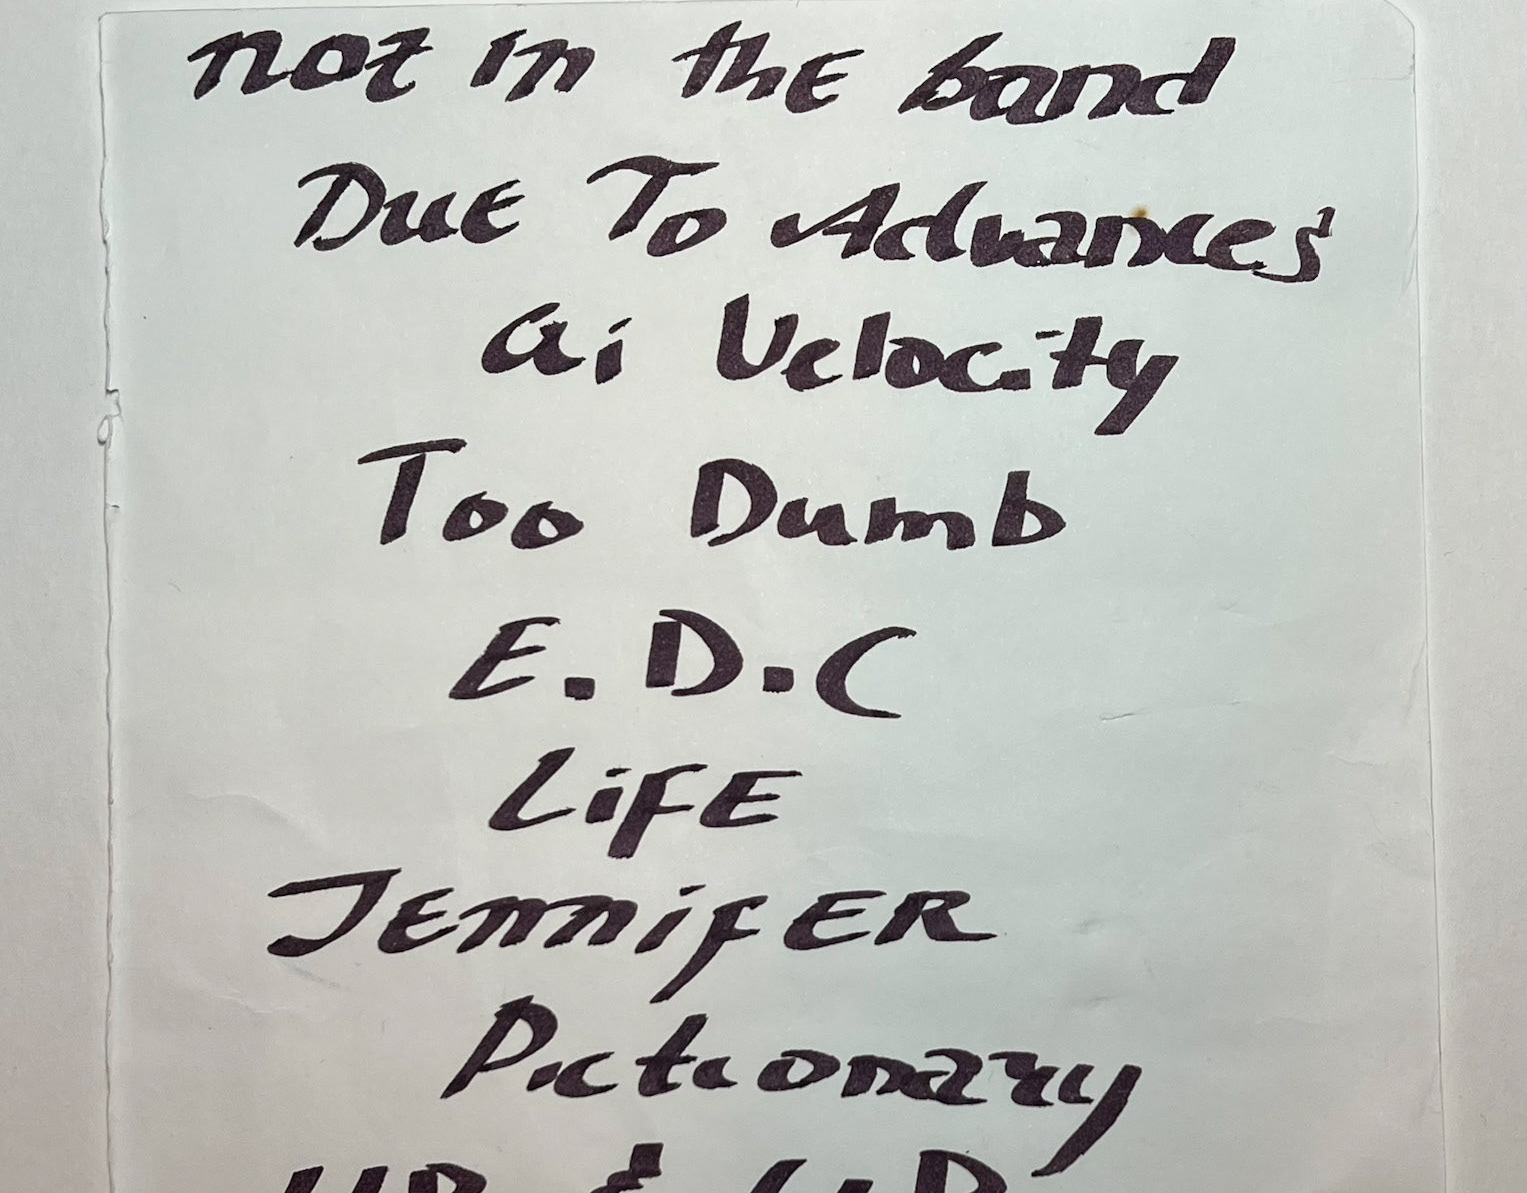 not in the band
Due To Advances
ai Velocity
Too Dumb
E.D.C
LifE
JEnnifER
Pictionary
UP &